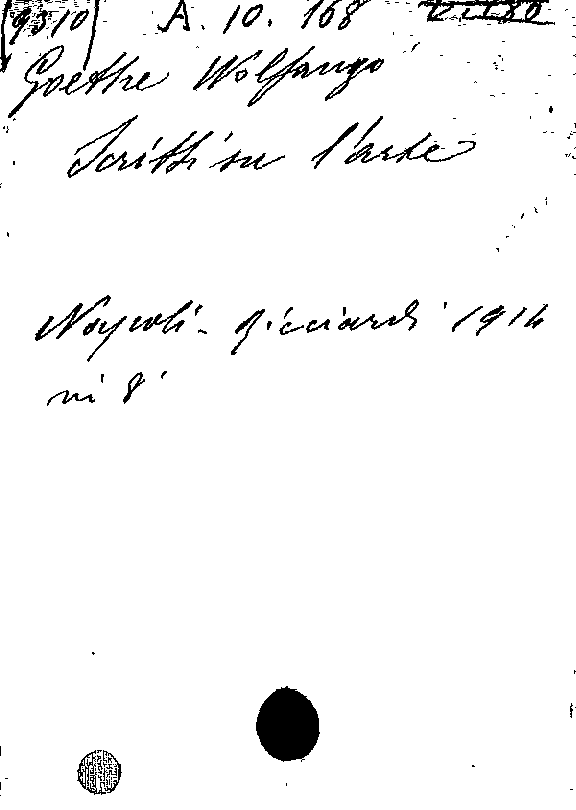 9310 A. 10. 168
Goethe Wolfango
Scritti su l'arte
Napoli - Ricciardi 1914
in 8°